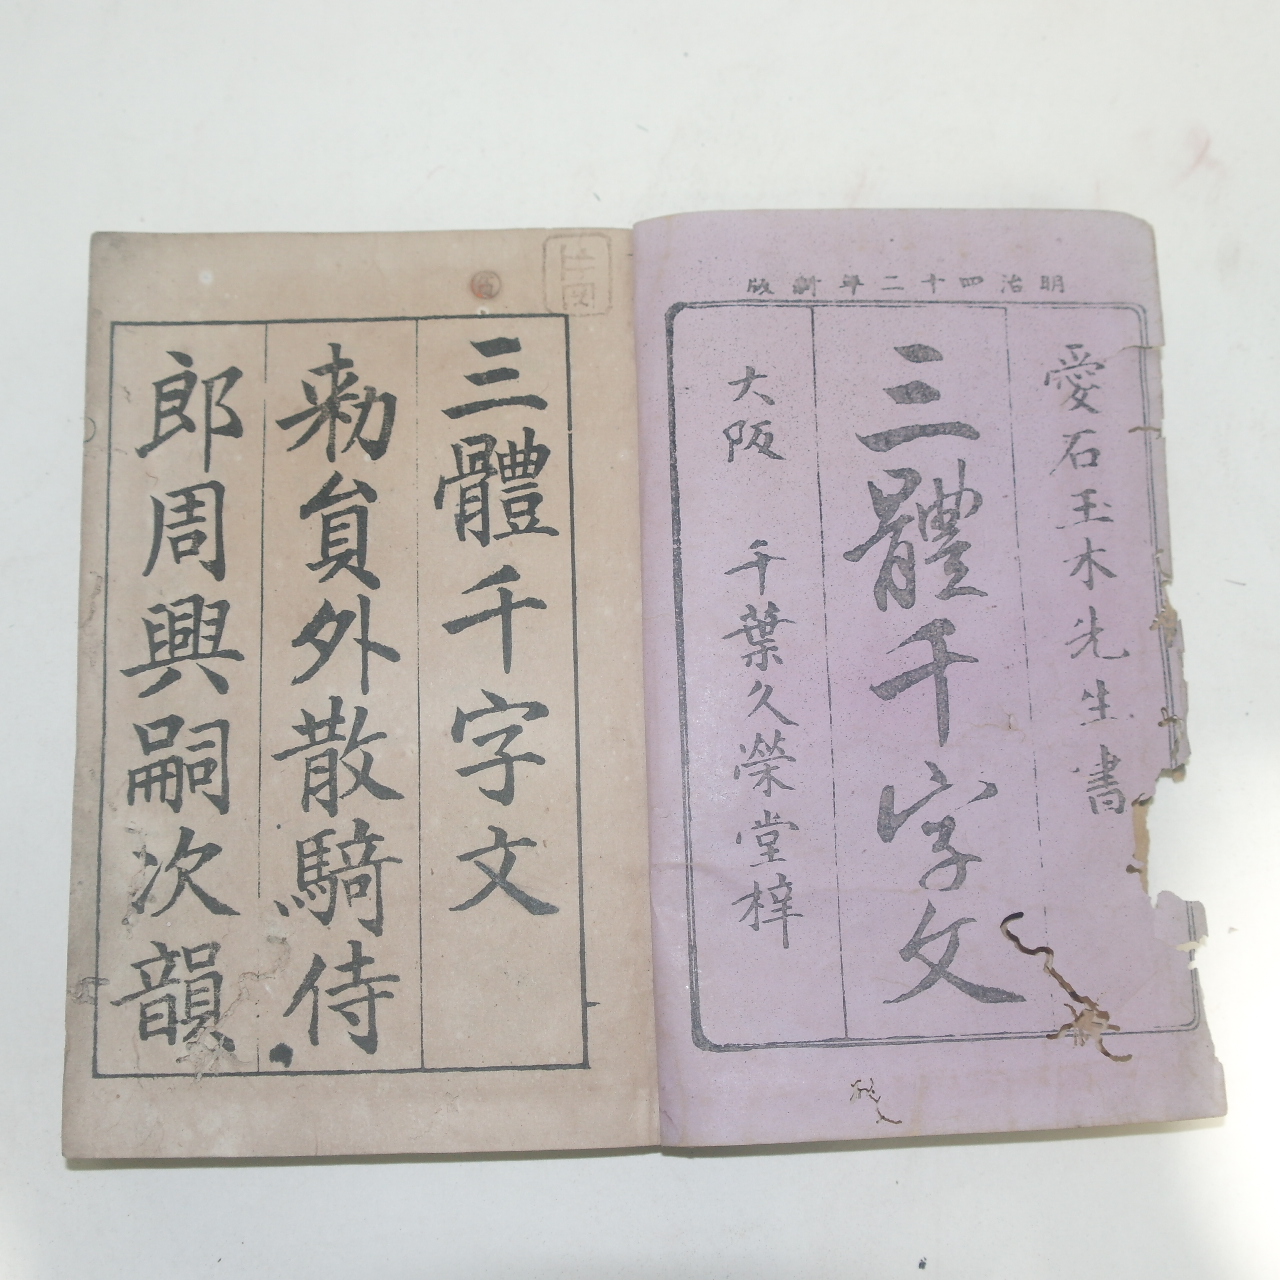 明治四十二年新版
愛石玉木先生書
三體千字文
大阪 千葉久榮堂梓
三體千字文
勑員外散騎侍
郎周興嗣次韻